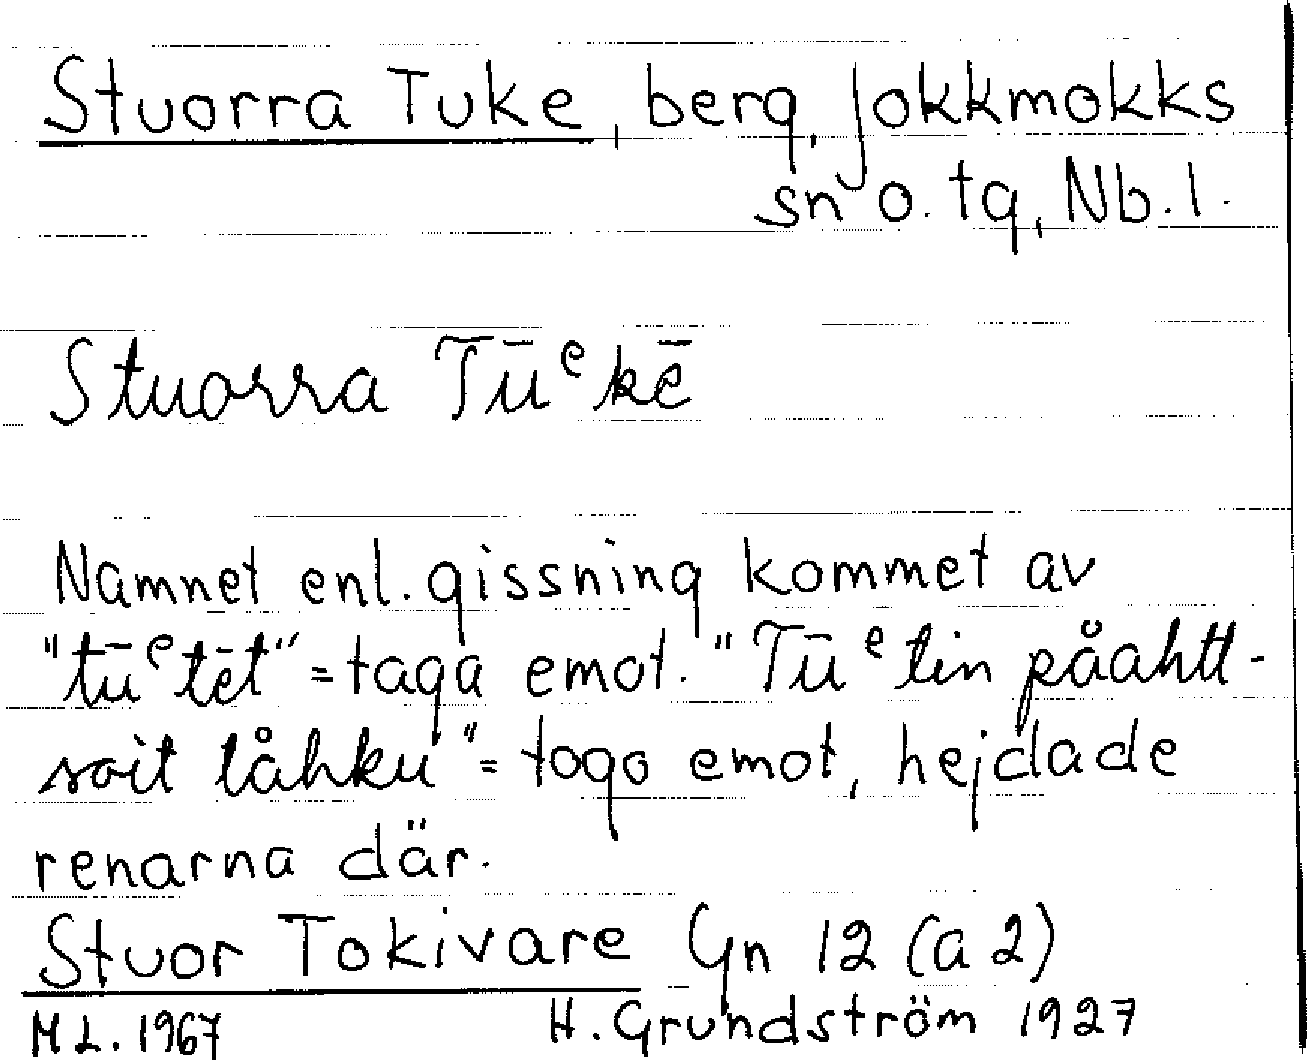 Stuorra Tuke, berg, Jokkmokks
sn o. tg, Nb. l.
Stuorra Tūᵉkē
Namnet enl. gissning kommet av
"tūᵉtēt" = taga emot. "Tūᵉtin påahtt-
soit låhku" = togo emot, hejdade
renarna där.
Stuor Tokivare Gn 12 (a 2)
M L. 1967 H. Grundström 1927